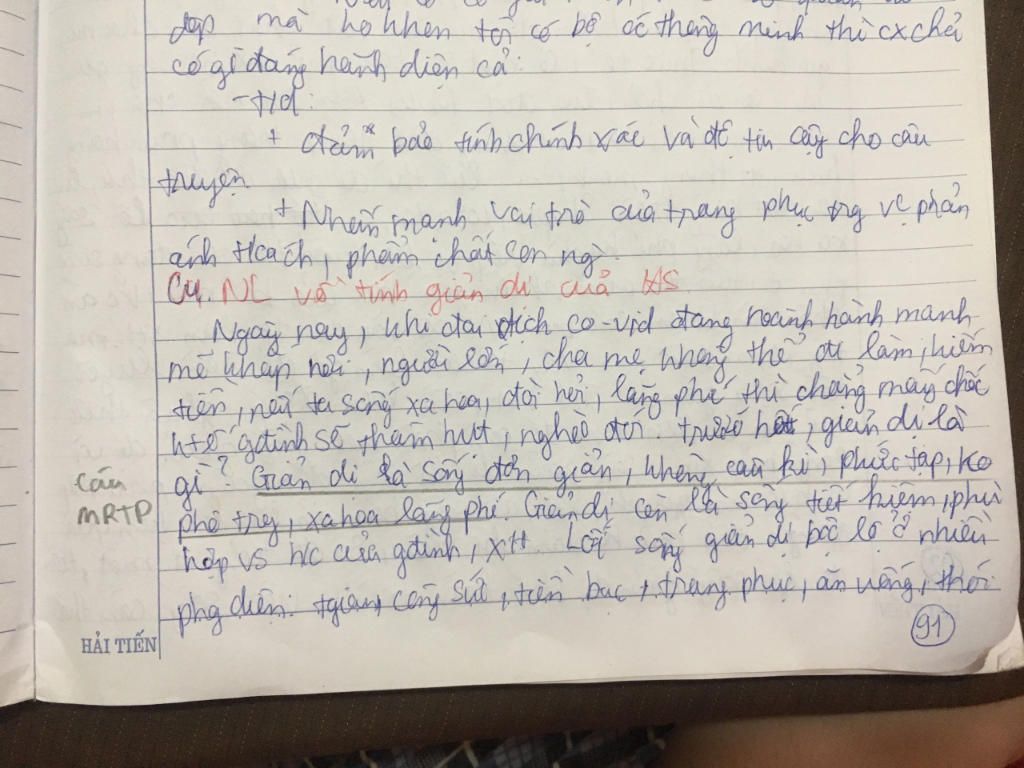 đẹp mà họ khen tôi có bộ óc thông minh thì cx chả
có gì đáng hành diện cả.
- t/d:
+ đảm bảo tính chính xác và độ tin cậy cho câu
truyện
+ Nhấn mạnh vai trò của trang phục trg vc phản
ánh tcách, phẩm chất con ng`.
C4. NL về tính giản dị của HS
Ngày nay, khi đại dịch co-vid đang hoành hành mạnh
mẽ khắp nơi, người lớn, cha mẹ không thể đi làm, kiếm
tiền, nếu ta sống xa hoa, đòi hỏi, lãng phí thì chẳng mấy chốc
ktế gđình sẽ thâm hụt, nghèo đói. trước hết, giản dị là
gì? Giản dị là sống đơn giản, không cầu kì, phức tạp, ko
phô trg, xa hoa lãng phí. Giản dị còn là sống tiết kiệm, phù
hợp vs h/c của gđình, XH. Lối sống giản dị bộc lộ ở nhiều
phg diện: tgian, công sức, tiền bạc, trang phục, ăn uống, thói
Câu
MRTP
HẢI TIẾN
91